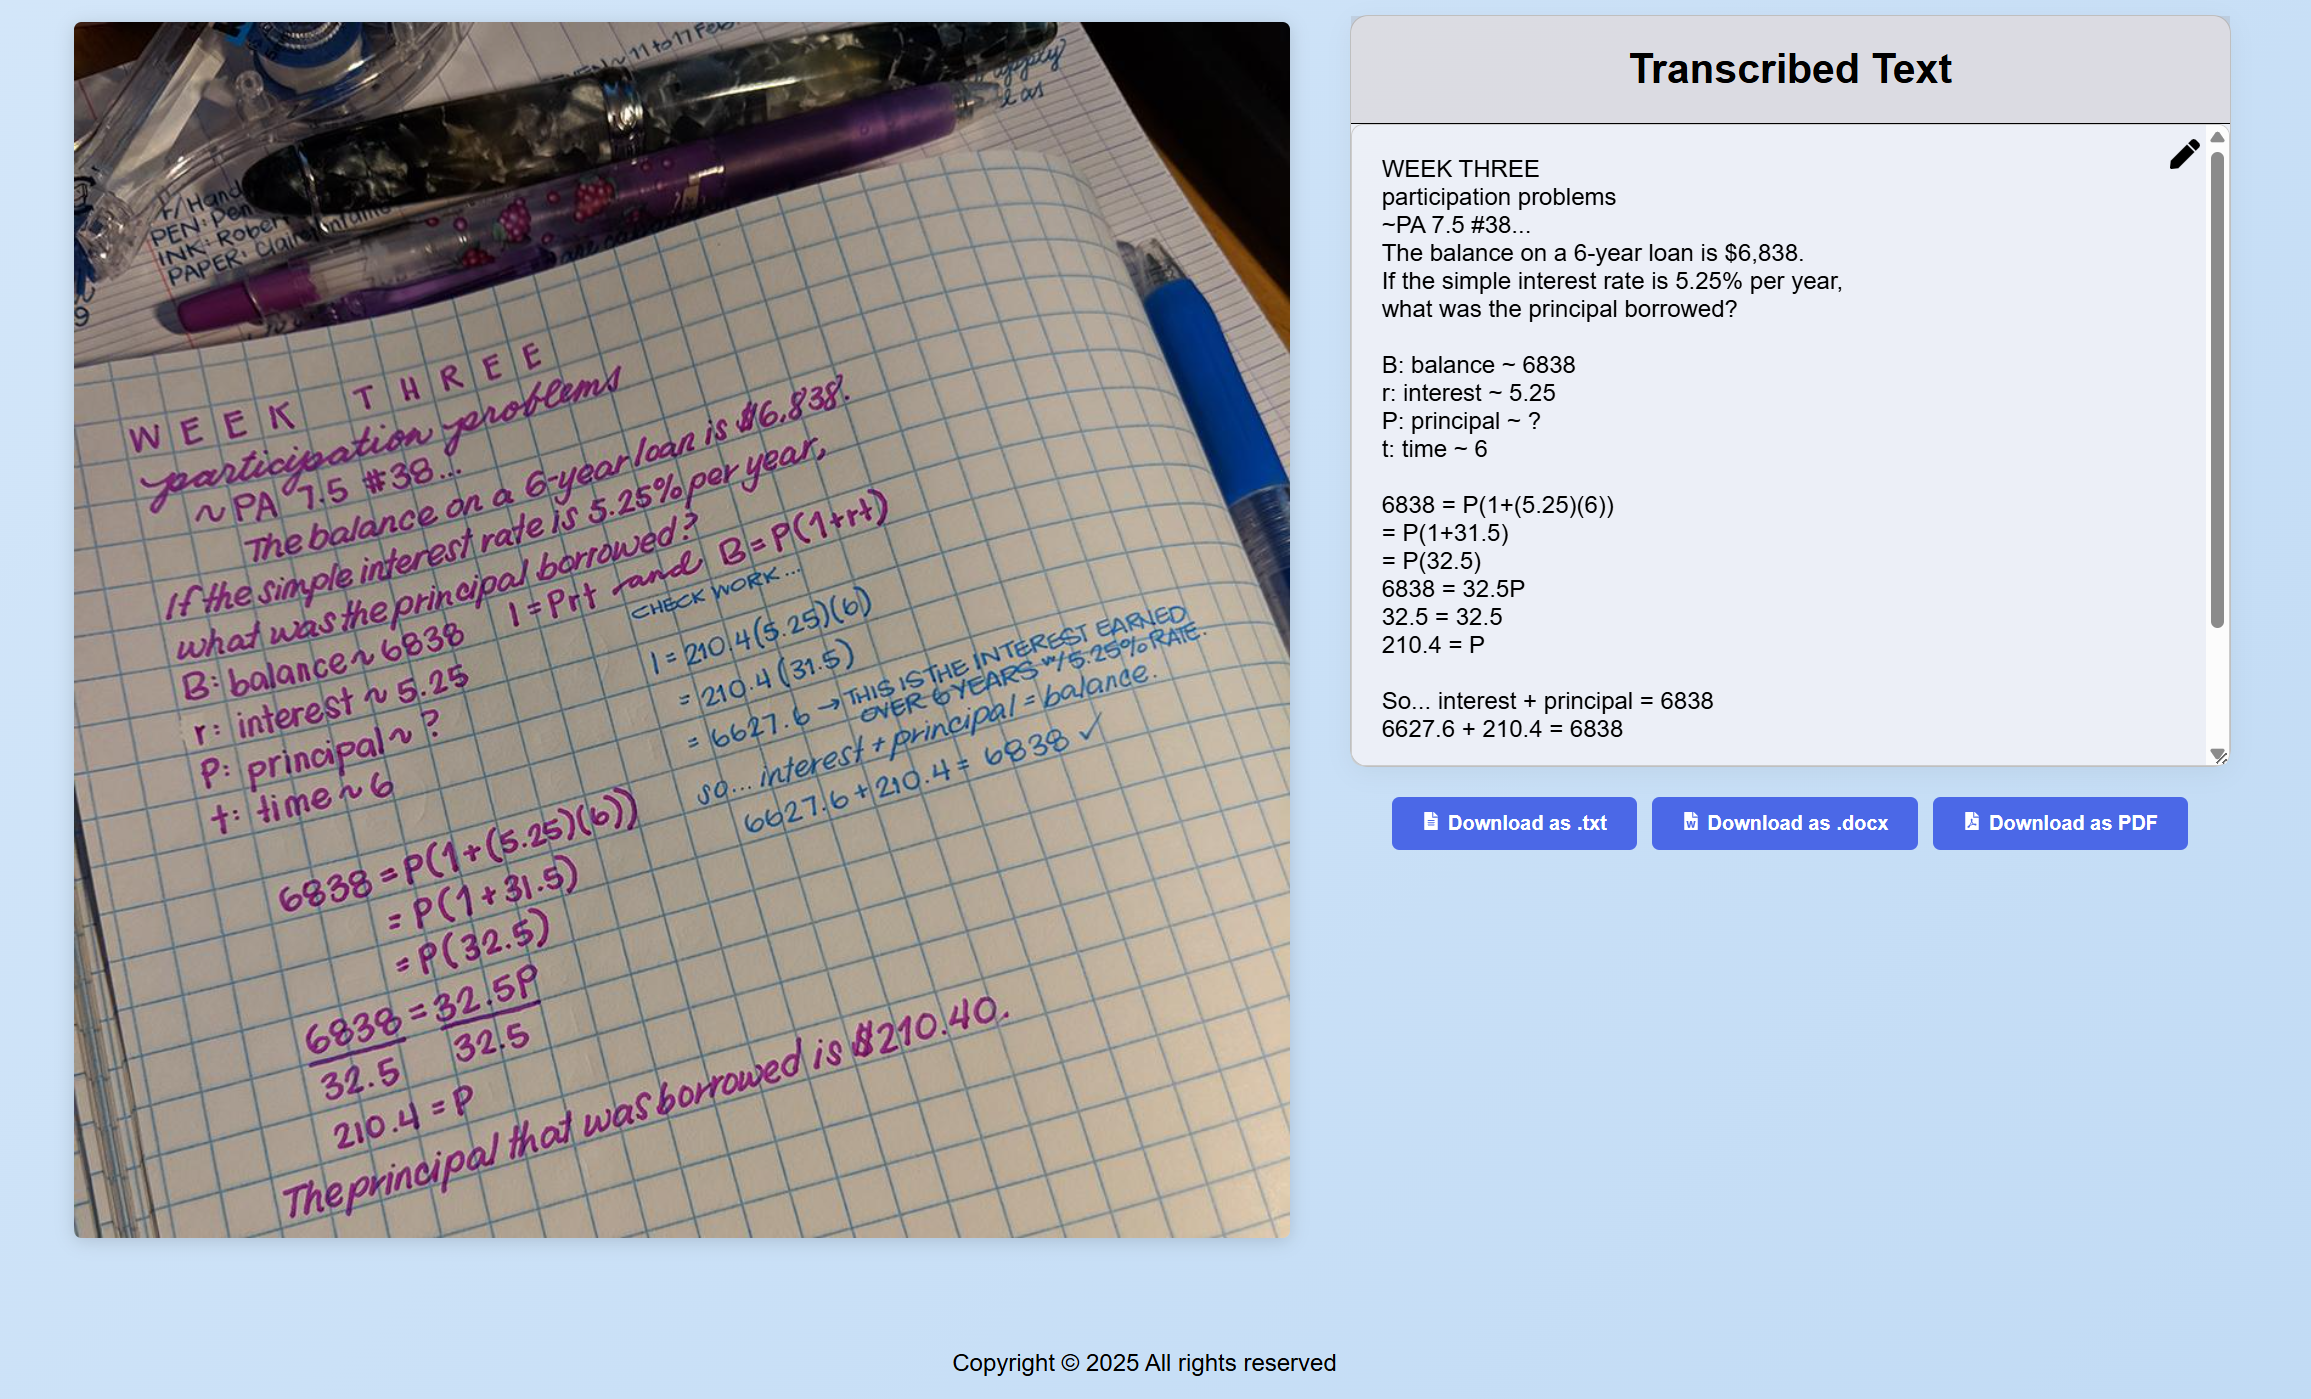 EVEN ~ 11 to 17 Feb
apply
l as
r/Hand
PEN: Pen
INK: Rober
PAPER: Clair
WEEK THREE
participation problems
~ PA 7.5 #38...
The balance on a 6-year loan is $6,838.
If the simple interest rate is 5.25% per year,
what was the principal borrowed?
I = Prt and B = P(1+rt)
B: balance ~ 6838
r: interest ~ 5.25
P: principal ~ ?
t: time ~ 6
6838 = P(1+(5.25)(6))
= P(1+31.5)
= P(32.5)
6838 = 32.5P
32.5 32.5
210.4 = P
The principal that was borrowed is $210.40.
CHECK WORK...
I = 210.4(5.25)(6)
= 210.4(31.5)
= 6627.6 → THIS IS THE INTEREST EARNED
OVER 6 YEARS w/ 5.25% RATE.
so... interest + principal = balance.
6627.6 + 210.4 = 6838 ✓
Transcribed Text
WEEK THREE
participation problems
~PA 7.5 #38...
The balance on a 6-year loan is $6,838.
If the simple interest rate is 5.25% per year,
what was the principal borrowed?
B: balance ~ 6838
r: interest ~ 5.25
P: principal ~ ?
t: time ~ 6
6838 = P(1+(5.25)(6))
= P(1+31.5)
= P(32.5)
6838 = 32.5P
32.5 = 32.5
210.4 = P
So... interest + principal = 6838
6627.6 + 210.4 = 6838
Download as .txt
Download as .docx
Download as PDF
Copyright © 2025 All rights reserved